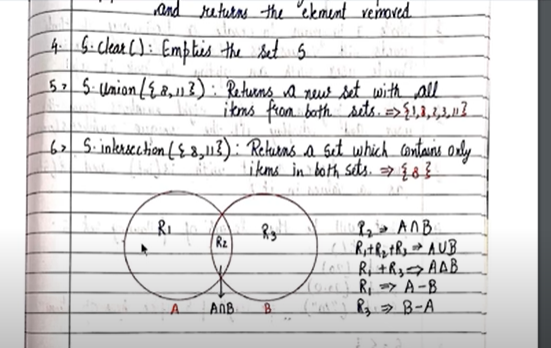 and returns the element removed
4. S.clear(): Empties the set S
5. S.union({8,11}): Returns a new set with all
items from both sets. ⇒ {1,8,2,3,11}
6. S.intersection({8,11}): Returns a set which contains only
items in both sets. ⇒ {8}
R1 R2 R3
A A∩B B
R2 ⇒ A∩B
R1+R2+R3 ⇒ A∪B
R1+R3 ⇒ AΔB
R1 ⇒ A-B
R3 ⇒ B-A